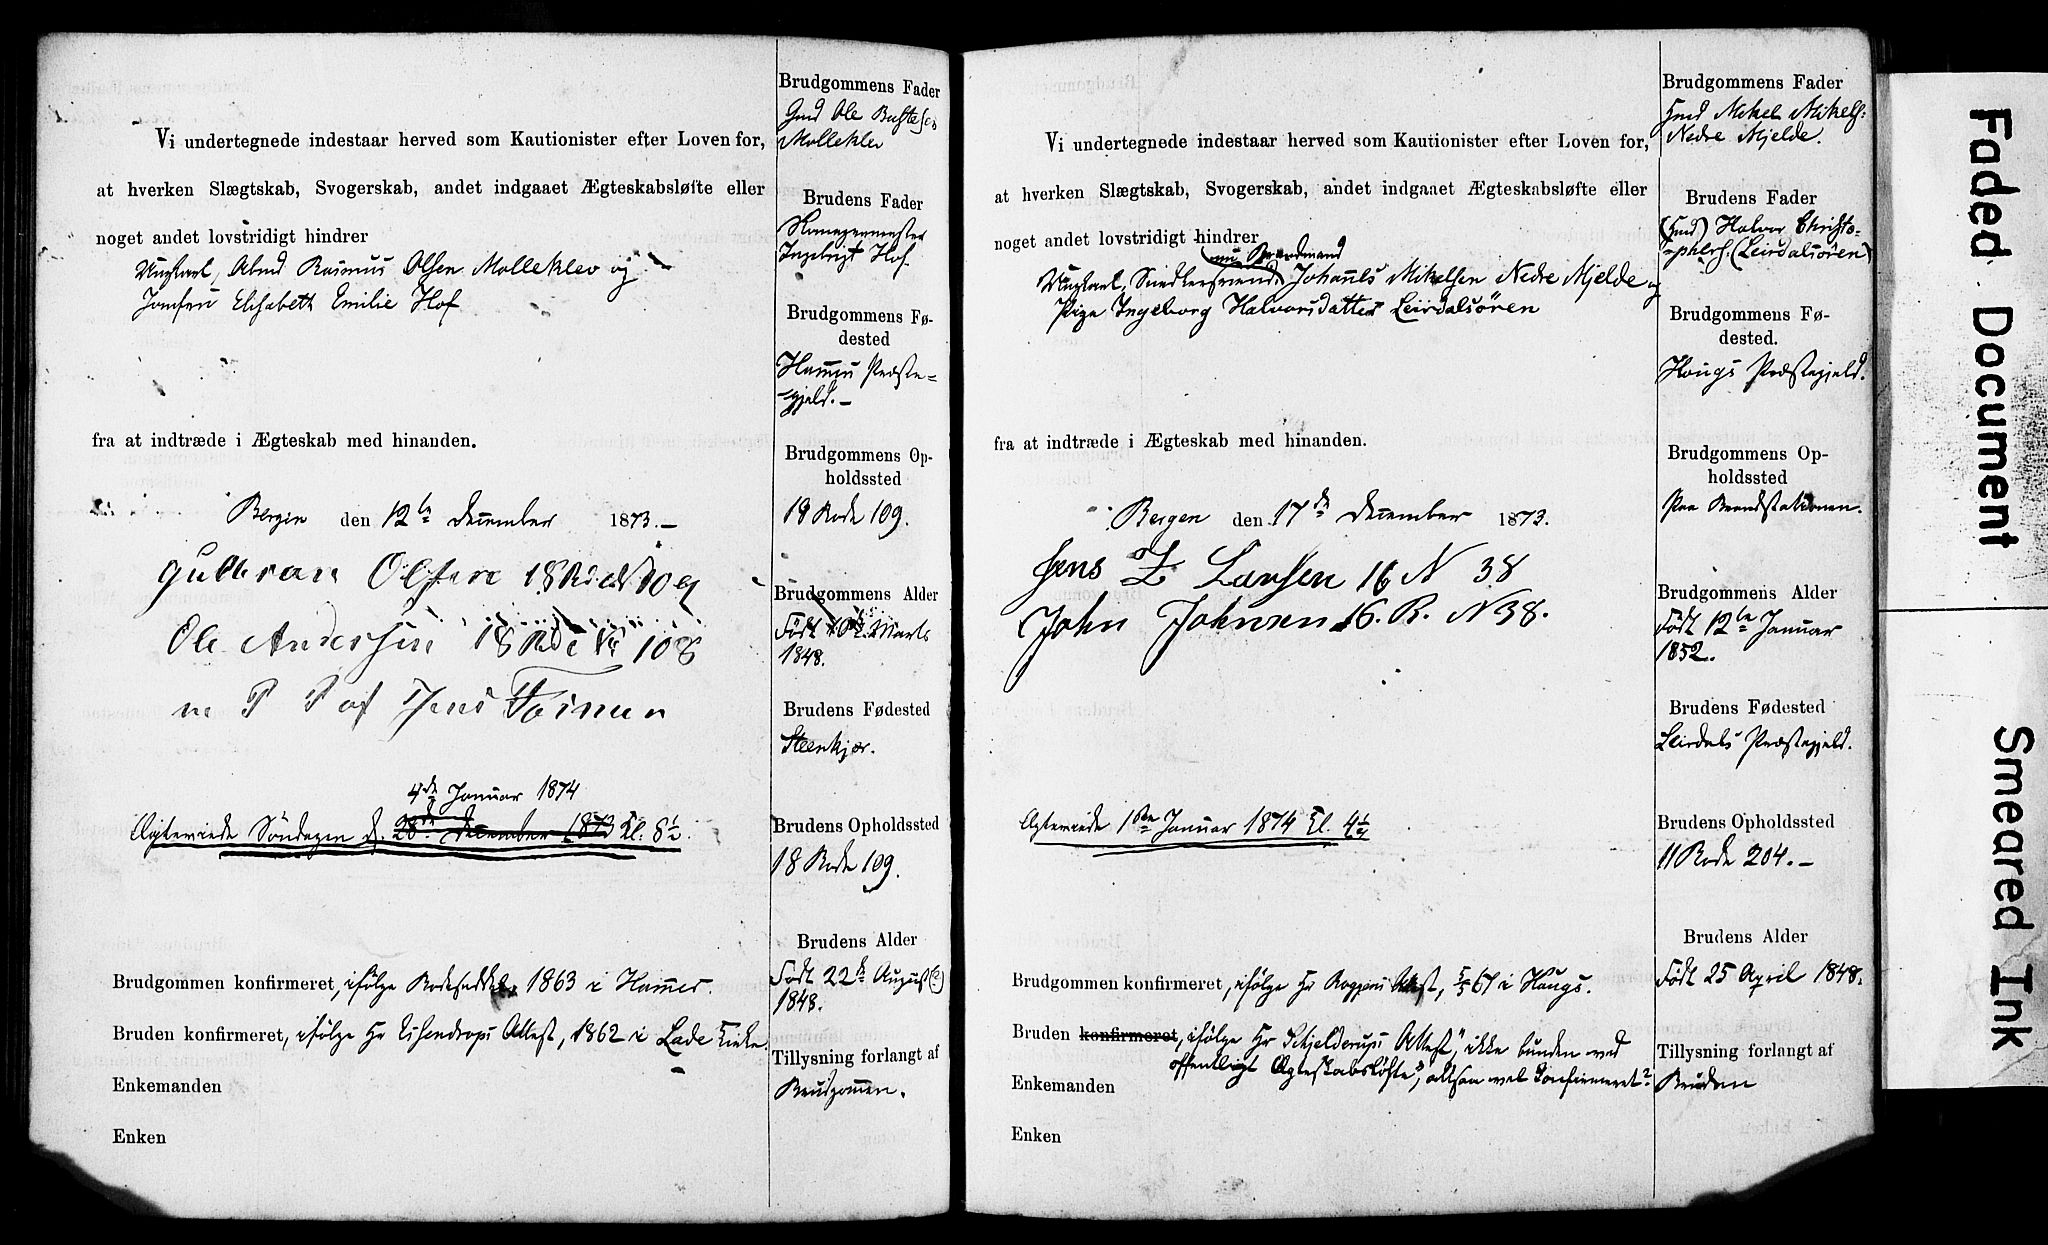 Vi undertegnede indestaar herved som Kautionister efter Loven for,
at hverken Slægtskab, Svogerskab, andet indgaaet Ægteskabsløfte eller
noget andet lovstridigt hindrer
Ungkarl, Rasmus Olsen Molleklev og
Jomfru Elisabeth Emilie Hof
fra at indtræde i Ægteskab med hinanden.
Bergen den 12te December 1873.
Olsen 18 Rode 109
Ole Andersen 18 Rode No 108
m P P af Jens
4de Januar 1874
Ægteviede Söndagen d. 28de December 1873 Kl. 6½.
Brudgommen konfirmeret, ifölge Rodeseddel, 1863 i Hammer.
Bruden konfirmeret, ifölge Hr Attest, 1862 i Lade Kirke.
Enkemanden
Enken
Brudgommens Fader
Gmd Ole
Molleklev
Brudens Fader
Ingebrigt Hof.
Brudgommens Fø-
dested
Hammer Præste-
gjeld.
Brudgommens Op-
holdssted
18 Rode 109.
Brudgommens Alder
Födt 10de Marts
1848.
Brudens Fødested
Steenkjær.
Brudens Opholdssted
18 Rode 109.
Brudens Alder
Födt 22de August (?)
1848.
Tillysning forlangt af
Brudgommen.
Vi undertegnede indestaar herved som Kautionister efter Loven for,
at hverken Slægtskab, Svogerskab, andet indgaaet Ægteskabsløfte eller
noget andet lovstridigt hindrer
nu Brandmand
Ungkarl, Snedkersvend, Johannes Mikelsen Nedre Mjelde og
Pige Ingeborg Halvorsdatter Leirdalsören
fra at indtræde i Ægteskab med hinanden.
Bergen den 17de December 1873.
Jens Z Larsen 16 N 38
John Johnsen 16. R. N 38.
Ægteviede 1ste Januar 1874 Kl. 4¼
Brudgommen konfirmeret, ifölge Hr Attest, 67 i Hougs.
Bruden konfirmeret, ifölge Hr Schjelderups Attest, "ikke bunden ved
offentligt Ægteskabslöfte", altsaa vel konfirmeret?
Enkemanden
Enken
Brudgommens Fader
Gmd Mikel Mikels:
Nedre Mjelde.
Brudens Fader
(Gmd) Halvor Christo-
phers. (Leirdalsören)
Brudgommens Fø-
dested.
Hougs Præstegjeld.
Brudgommens Op-
holdssted
Paa Brandstationen.
Brudgommens Alder
Födt 12te Januar
1852.
Brudens Fødested
Leirdals Præstegjeld.
Brudens Opholdssted
11 Rode 204.
Brudens Alder
Födt 25 April 1848.
Tillysning forlangt af
Bruden
Faded Document
Smeared Ink